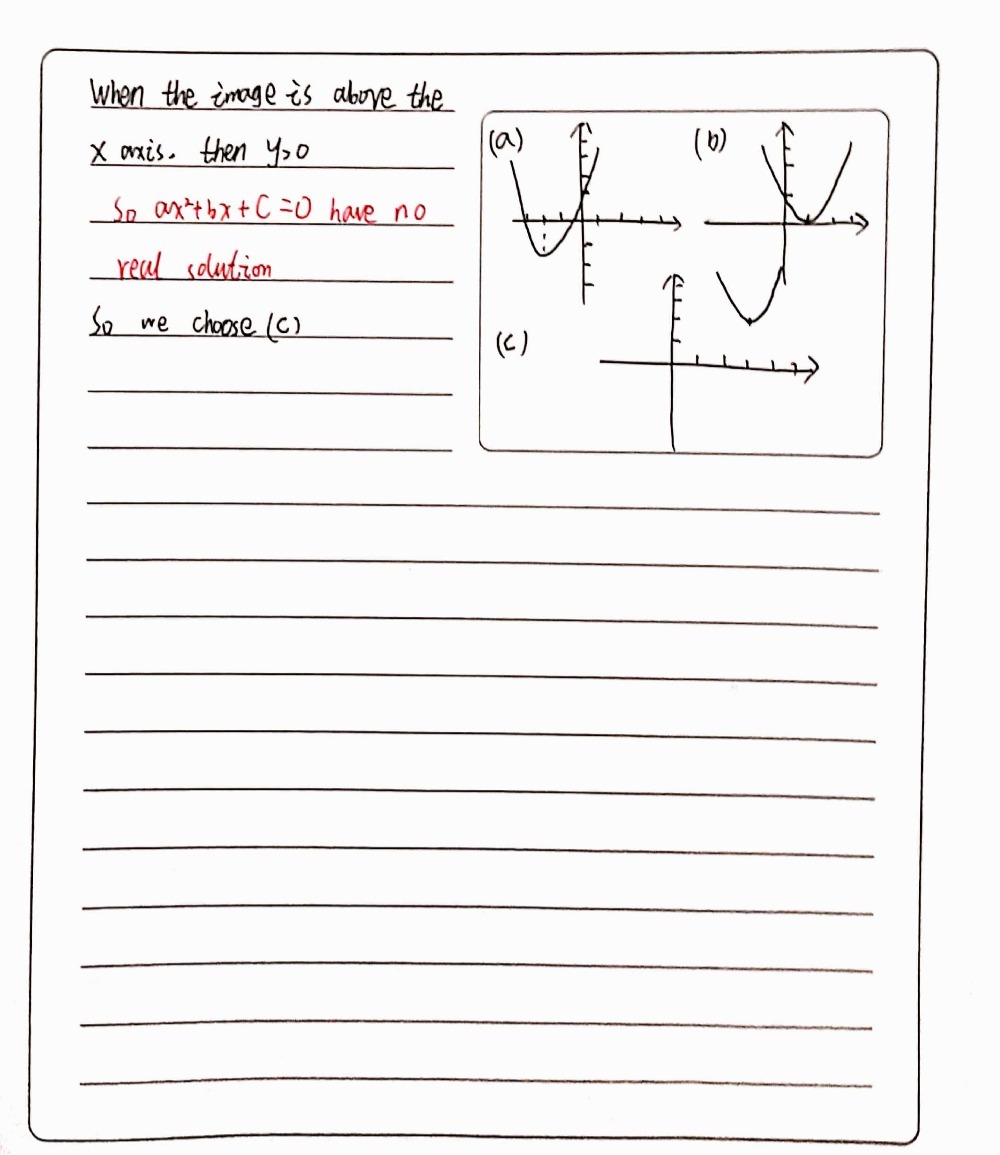 When the image is above the
x axis. then y>0
So ax²+bx+C=0 have no
real solution
So we choose (c)
(a)
(b)
(c)